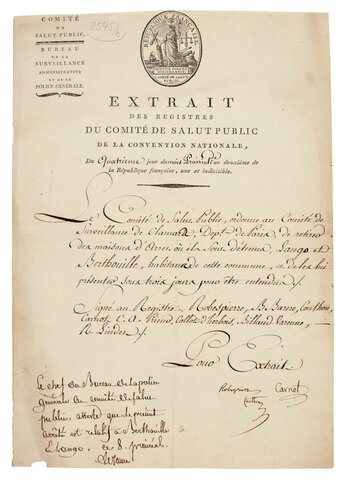 COMITÉ
DE
SALUT PUBLIC.
BUREAU
DE LA
SURVEILLANCE
ADMINISTRATIVE
ET DE LA
POLICE GÉNÉRALE.
RÉPUBLIQUE FRANÇAISE.
EXTRAIT
DES REGISTRES
DU COMITÉ DE SALUT PUBLIC
DE LA CONVENTION NATIONALE,
Du Quatrieme jour du mois Prairial l'an deuxième de
la République française, une et indivisible.
Le Comité de Salue Public, ordonne au Comité de
Surveillance de Clamart, Dept. de Paris, de retirer
des maisons d'Arret où ils sont détenus, Lhango et
Berthouille, habitans de cette commune, et de les lui
présenter sous trois jours pour être entendus ./.
Signé au Registre, Robespierre, B. Barere, Couthon,
Carnot, C. A. Prieur, Collot-d'herbois, Billaud Varenne,
R. Lindet ./.
Pour Extrait.
Robespierre Carnot
Le chef du Bureau de la police
générale du comité de salue
public, atteste que le présent
arrêté est relatif à Berthouille
ce 8. prairial